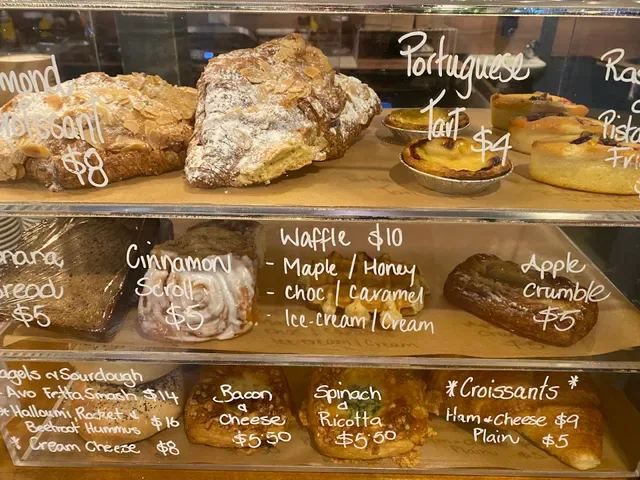 mond
roissant
$8
Portuguese
Tart $4
Pista
Fri
nana
read
$5
Cinnamon
Scroll
$5
Waffle $10
- Maple / Honey
- Choc / Caramel
- Ice-cream / Cream
Apple
Crumble
$5
agels or Sourdough
- Avo Fetta Smash $14
* Halloumi Rocket &
Beetroot Hummus $16
* Cream Cheese $8
Bacon
&
Cheese
$5.50
Spinach
&
Ricotta
$5.50
* Croissants *
Ham & Cheese $9
Plain $5